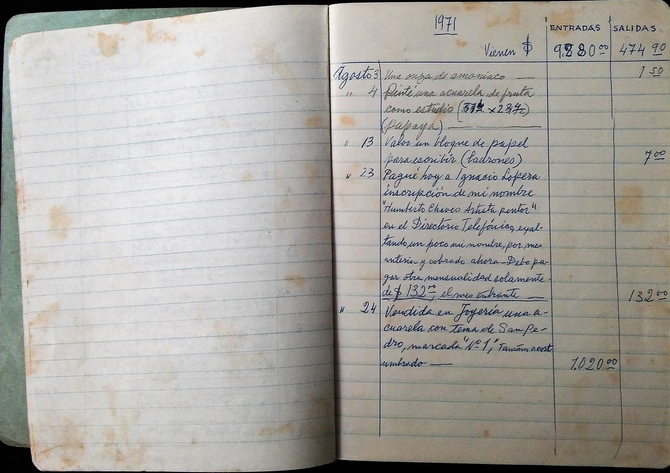 1971
ENTRADAS SALIDAS
Vienen $ 9.880.00 474.90
Agosto 3 Una onza de amoniaco — 1.50
" 4 Pinté una acuarela de fruta
como estudio (
(papaya)
" 13 Valor un bloque de papel
para escribir (ladrones) 7.00
" 23 Pagué hoy a Ignacio Lopera
inscripción de mi nombre
"Humberto Chaves Artista pintor"
en el Directorio Telefónico, exal-
tando un poco mi nombre, por mes
anterior y cobrado ahora - Debo pa-
gar otra mensualidad solamente-
de $ 132.00, el mes entrante — 132.00
" 24 Vendida en Joyería una a-
cuarela con tema de San Pe-
dro, marcada "Nº 1", Tamaño acost
umbrado — 1.020.00